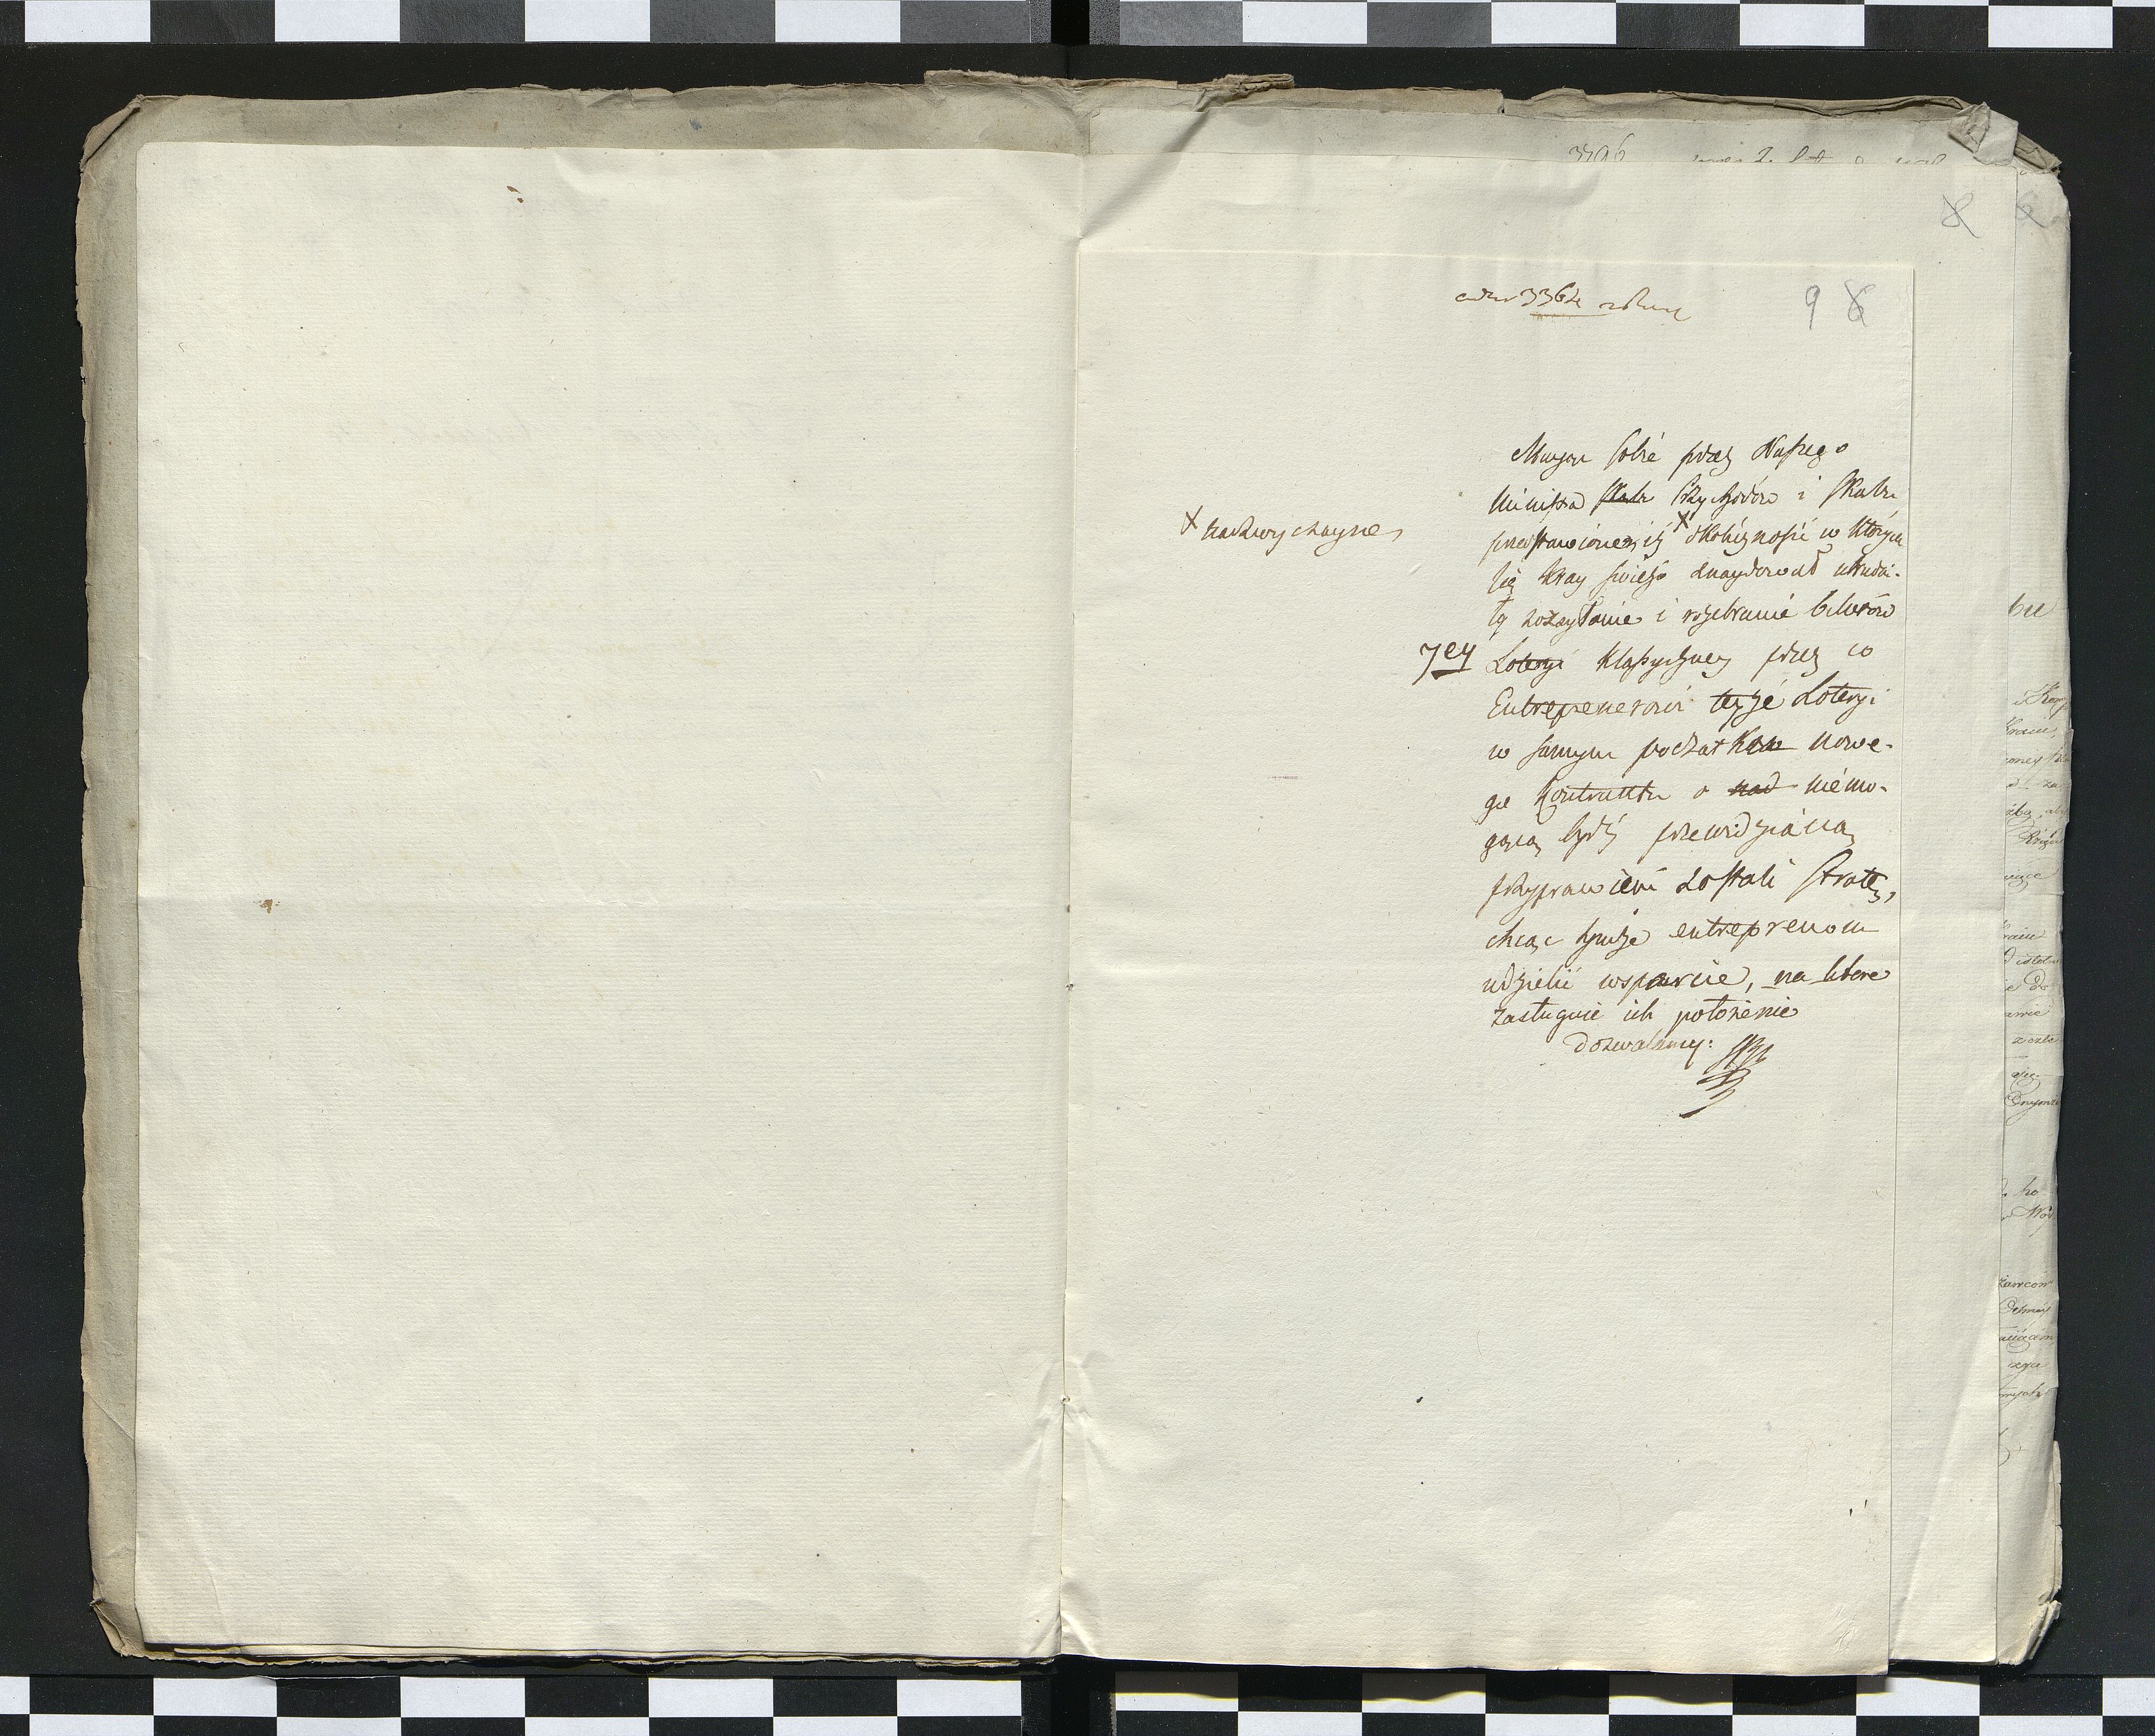 3396
8
ad Nr 3364
9 8
Mając sobie przez Naszego
Ministra Skarbu Przychodów i Skarbu
przedstawione iż X okoliczności w których
X nadzwyczayne
się kray świeżo znaydował utrudni-
ły rozsyłanie i rozebranie biletów
7ey Loteryi Klassyczney przez co
Entreprenerowie teyże Loteryi
w samym początku nowe-
go Kontraktu o nad niemo-
gącą bydź przewidzianą
przyprawieni zostali stratę,
chcąc tymże entreprenerom
udzielić wsparcie, na które
zasługuie ich położenie
dozwalamy: